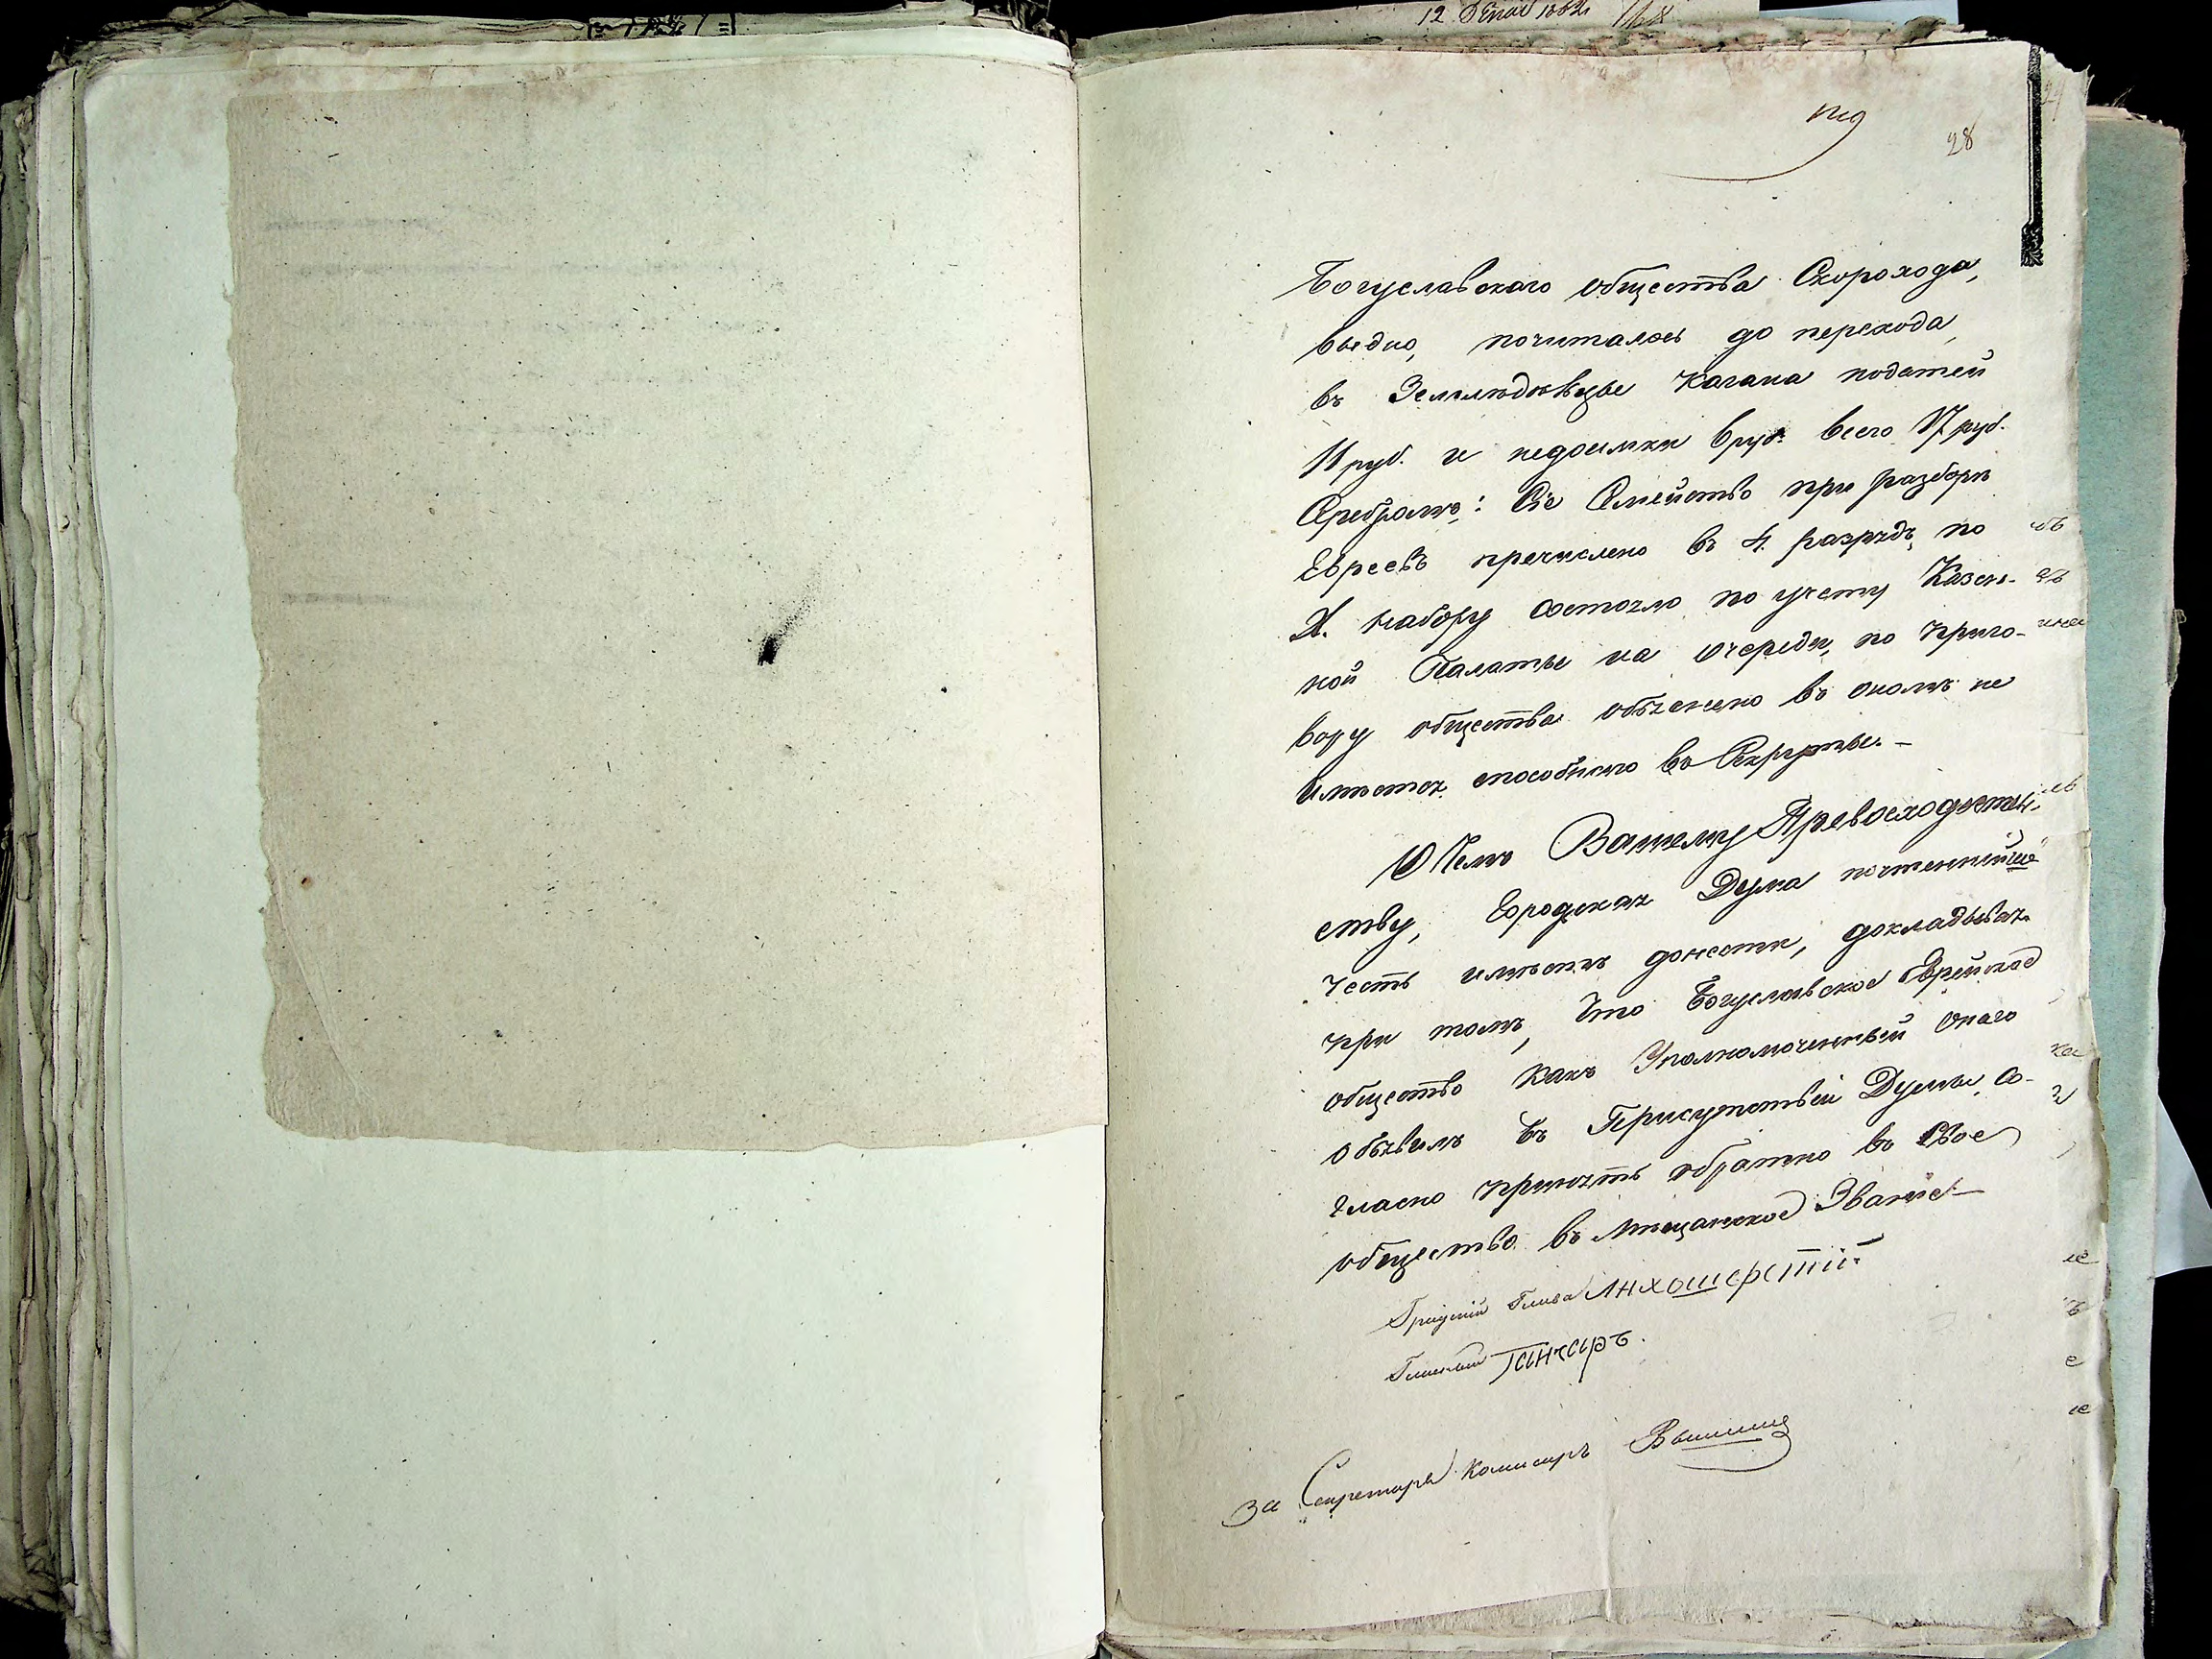 28
Богуславскаго общества Скорохода,
видно, почиталось до перехода
въ Земледѣльцы Кагана податей
11 руб. и недоимки 6 руб. всего 17 руб.
Серебромъ: Сіе Семейство при разборѣ
Евреевъ пречислено въ 4. разрядъ, по
X. набору состояло по учету Казен-
ной Палаты на очереди, по приго-
вору общества объяснено въ ономъ не
имѣется способнаго въ Рекруты. —
О чемъ Вашему Превосходитель-
ству, Городская Дума почтеннѣйше
честь имѣетъ донести, докладывая
при томъ, что Богуславское Еврейское
общество какъ Уполномоченный онаго
объявилъ въ Присутствіи Думы, со-
гласно принять обратно въ свое
общество въ мѣщанское Званіе —
Градскій Глава Лихошерстій
Гласный Ганчаръ.
За Секретаря Комисаръ